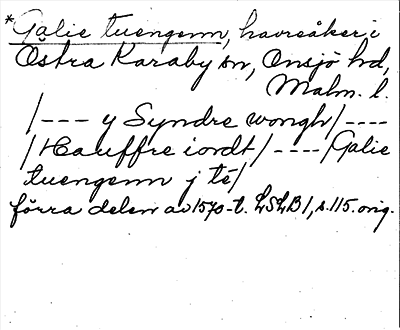 *Galie tuengenn, havreåker i
Östra Karaby sn, Onsjö hd,
Malm. l.
/--- y Syndre wongh/----
/Hauffre iordt/----/Galie
tuengenn j té/
förra delen av 1570-t. LSLB 1, s. 115. orig.